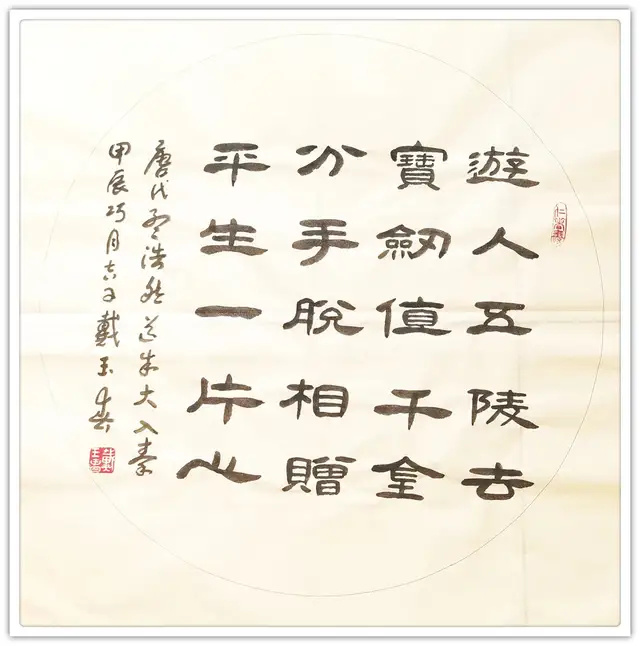 遊人五陵去
寶劒值千金
分手脫相贈
平生一片心
唐代孟浩然送朱大入秦
甲辰巧月戴玉春